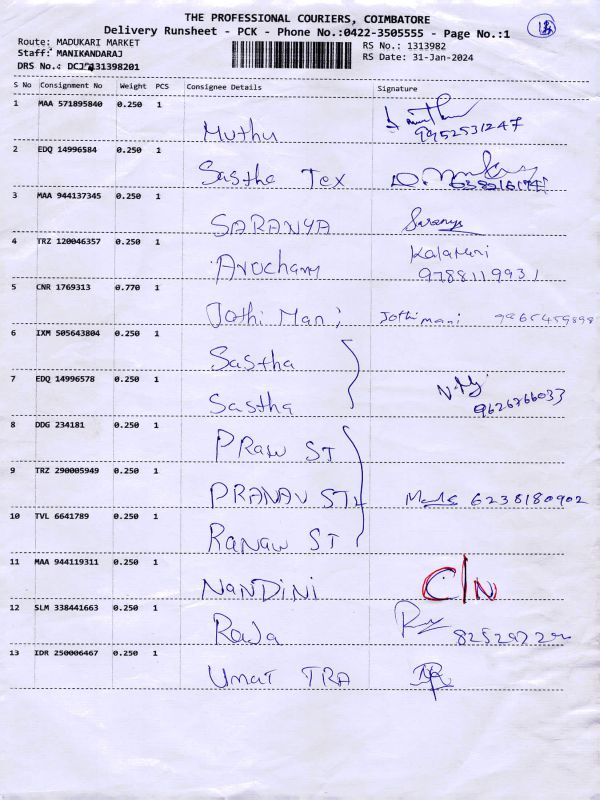 THE PROFESSIONAL COURIERS, COIMBATORE
Delivery Runsheet - PCK - Phone No.:0422-3505555 - Page No.:1
13
Route: MADUKARI MARKET
Staff: MANIKANDARAJ
DRS No.: DCJ 131398201
RS No.: 1313982
RS Date: 31-Jan-2024
S No Consignment No Weight PCS Consignee Details Signature
1 MAA 571895840 0.250 1 Muthu 9952531247
2 EDQ 14996584 0.250 1 Sastha Tex
3 MAA 944137345 0.250 1 SARANYA Saranya
4 TRZ 120046357 0.250 1 Arochany Kalamani
9788119931
5 CNR 1769313 0.770 1 Jothi Mani Jothimani 9965459898
6 IXM 505643804 0.250 1 Sastha
7 EDQ 14996578 0.250 1 Sastha 9626766033
8 DDG 234181 0.250 1 PRAW ST
9 TRZ 290005949 0.250 1 PRANAV ST 6238180902
10 TVL 6641789 0.250 1 RaNaw ST
11 MAA 944119311 0.250 1 NANDiNi C/N
12 SLM 338441663 0.250 1 RaJa
13 IDR 250006467 0.250 1 Umat TRA